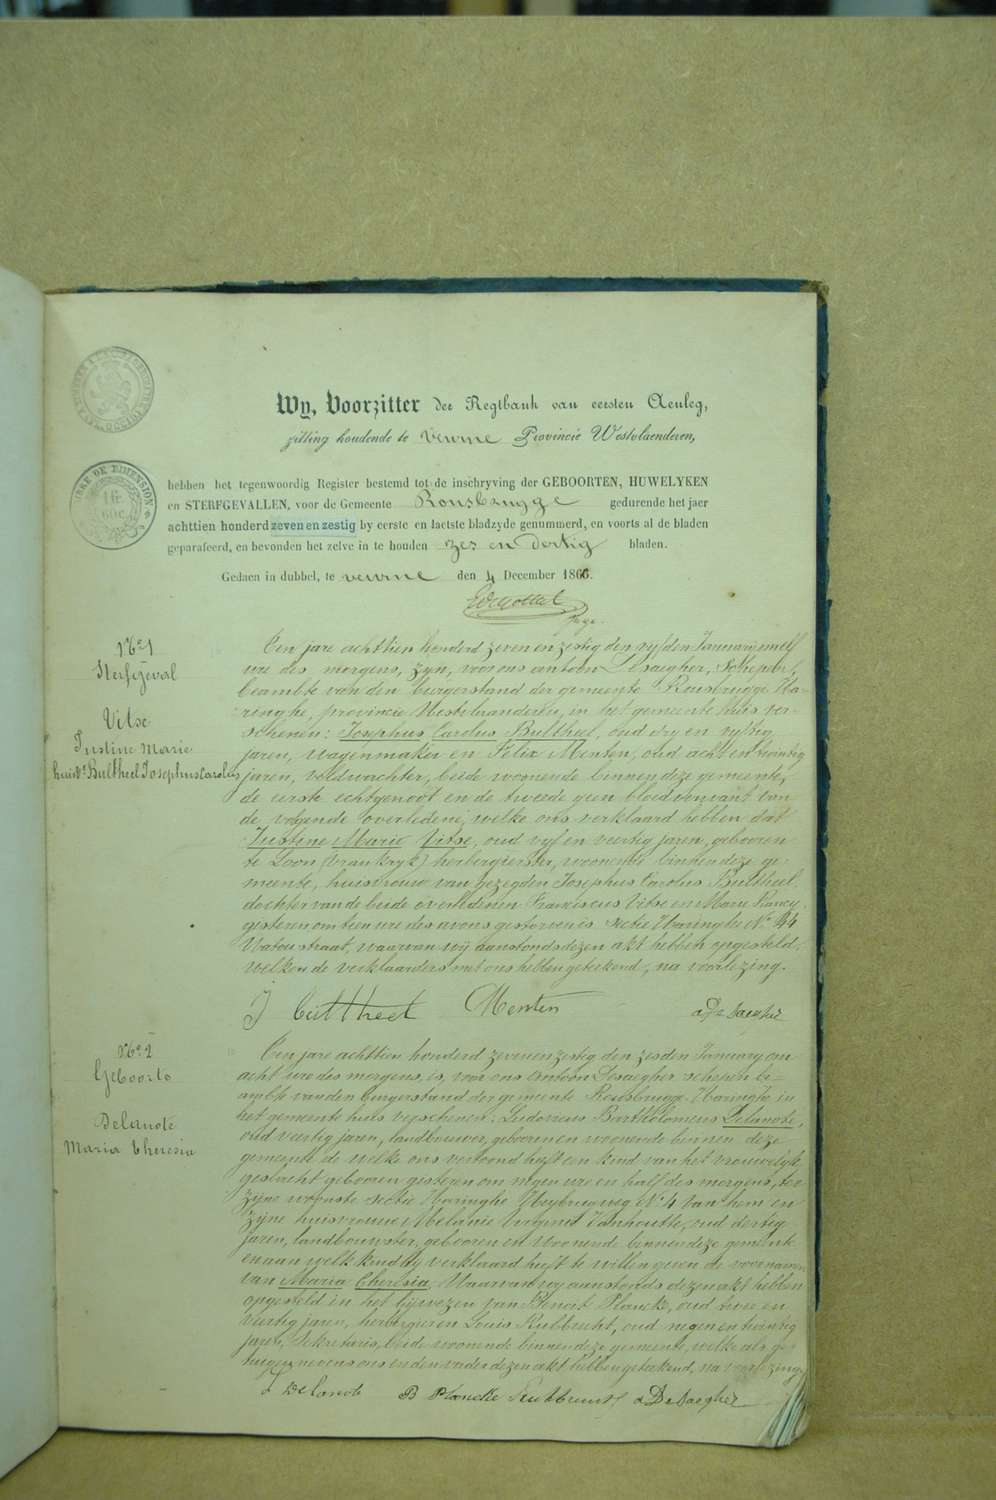 Wy, Voorzitter der Regtbank van eersten Aenleg,
zitting houdende te Veurne Provincie Westvlaenderen,
hebben het tegenwoordig Register bestemd tot de inschryving der GEBOORTEN, HUWELYKEN
en STERFGEVALLEN, voor de Gemeente Rousbrugge gedurende het jaer
achttien honderd zeven en zestig by eerste en laetste bladzyde genummerd, en voorts al de bladen
geparafeerd, en bevonden het zelve in te houden zes en dertig bladen.
Gedaen in dubbel, te veurne den 4 December 1866.
N° 1
Sterfgeval
Vitse
Justine Marie
huisv. Bultheel Josephus Carolus
Een jare achttien honderd zeven en zestig den vyfden January om elf
ure des morgens, zyn, voor ons Antoon Desaegher, Schepen,
beambte van den burgerstand der gemeente Rousbrugge Ha-
ringhe, provincie Westvlaanderen, in het gemeente huis ver-
schenen: Josephus Carolus Bultheel, oud dry en vyftig
jaren, wagenmaker en Felix Menten, oud acht en twintig
jaren, veldwachter, beide woonende binnen deze gemeente,
de eerste echtgenoot en de tweede geen bloedverwant van
de volgende overledene, welke ons verklaard hebben dat
Justine Marie Vitse, oud vyf en veertig jaren, geboren
te Loon (Frankryk) herbergierster, woonende binnen deze ge-
meente, huisvrouw van gezegden Josephus Carolus Bultheel,
dochter van de beide overledenen Franciscus Vitse en Marie
gisteren om tien ure des avons gestorven is sectie Haringhe N° 44
Vatou straat, waarvan wy aanstonds dezen akt hebben opgesteld,
welken de verklaarders met ons hebben geteekend, na voorlezing.
J Bultheel Menten A De Saegher
N° 2
Geboorte
Delanote
Maria Theresia
Een jare achttien honderd zeven en zestig den zesden January om
acht ure des morgens, is, voor ons Antoon Desaegher schepen be-
ambte van den burgerstand der gemeente Rousbrugge Haringhe in
het gemeente huis verschenen: Ludovicus Bartholomeus Delanote,
oud veertig jaren, landbouwer, geboren en woonende binnen deze
gemeente de welke ons vertoond heeft een kind van het vrouwelyk
geslacht geboren gisteren om negen ure en half des morgens, ten
zyne woonste sectie Haringhe N° 4 van hem en
zyne huisvrouw Melanie Vanhoutte, oud dertig
jaren, landbouwster, geboren en woonende binnen deze gemeente
en aan welk kind hy verklaard heeft te willen geven de voornamen
van Maria Theresia, Waarvan wy aanstonds dezen akt hebben
opgesteld in het bywezen van Benoit Plancke, oud twee en
veertig jaren, herbergier en Louis Rubbrecht, oud negen en twintig
jaren, Sekretaris, beide woonende binnen deze gemeente, welke als ge-
tuigen nevens ons en den vader dezen akt hebben geteekend, na voorlezing
L Delanote B Plancke Rubbrecht A De Saegher